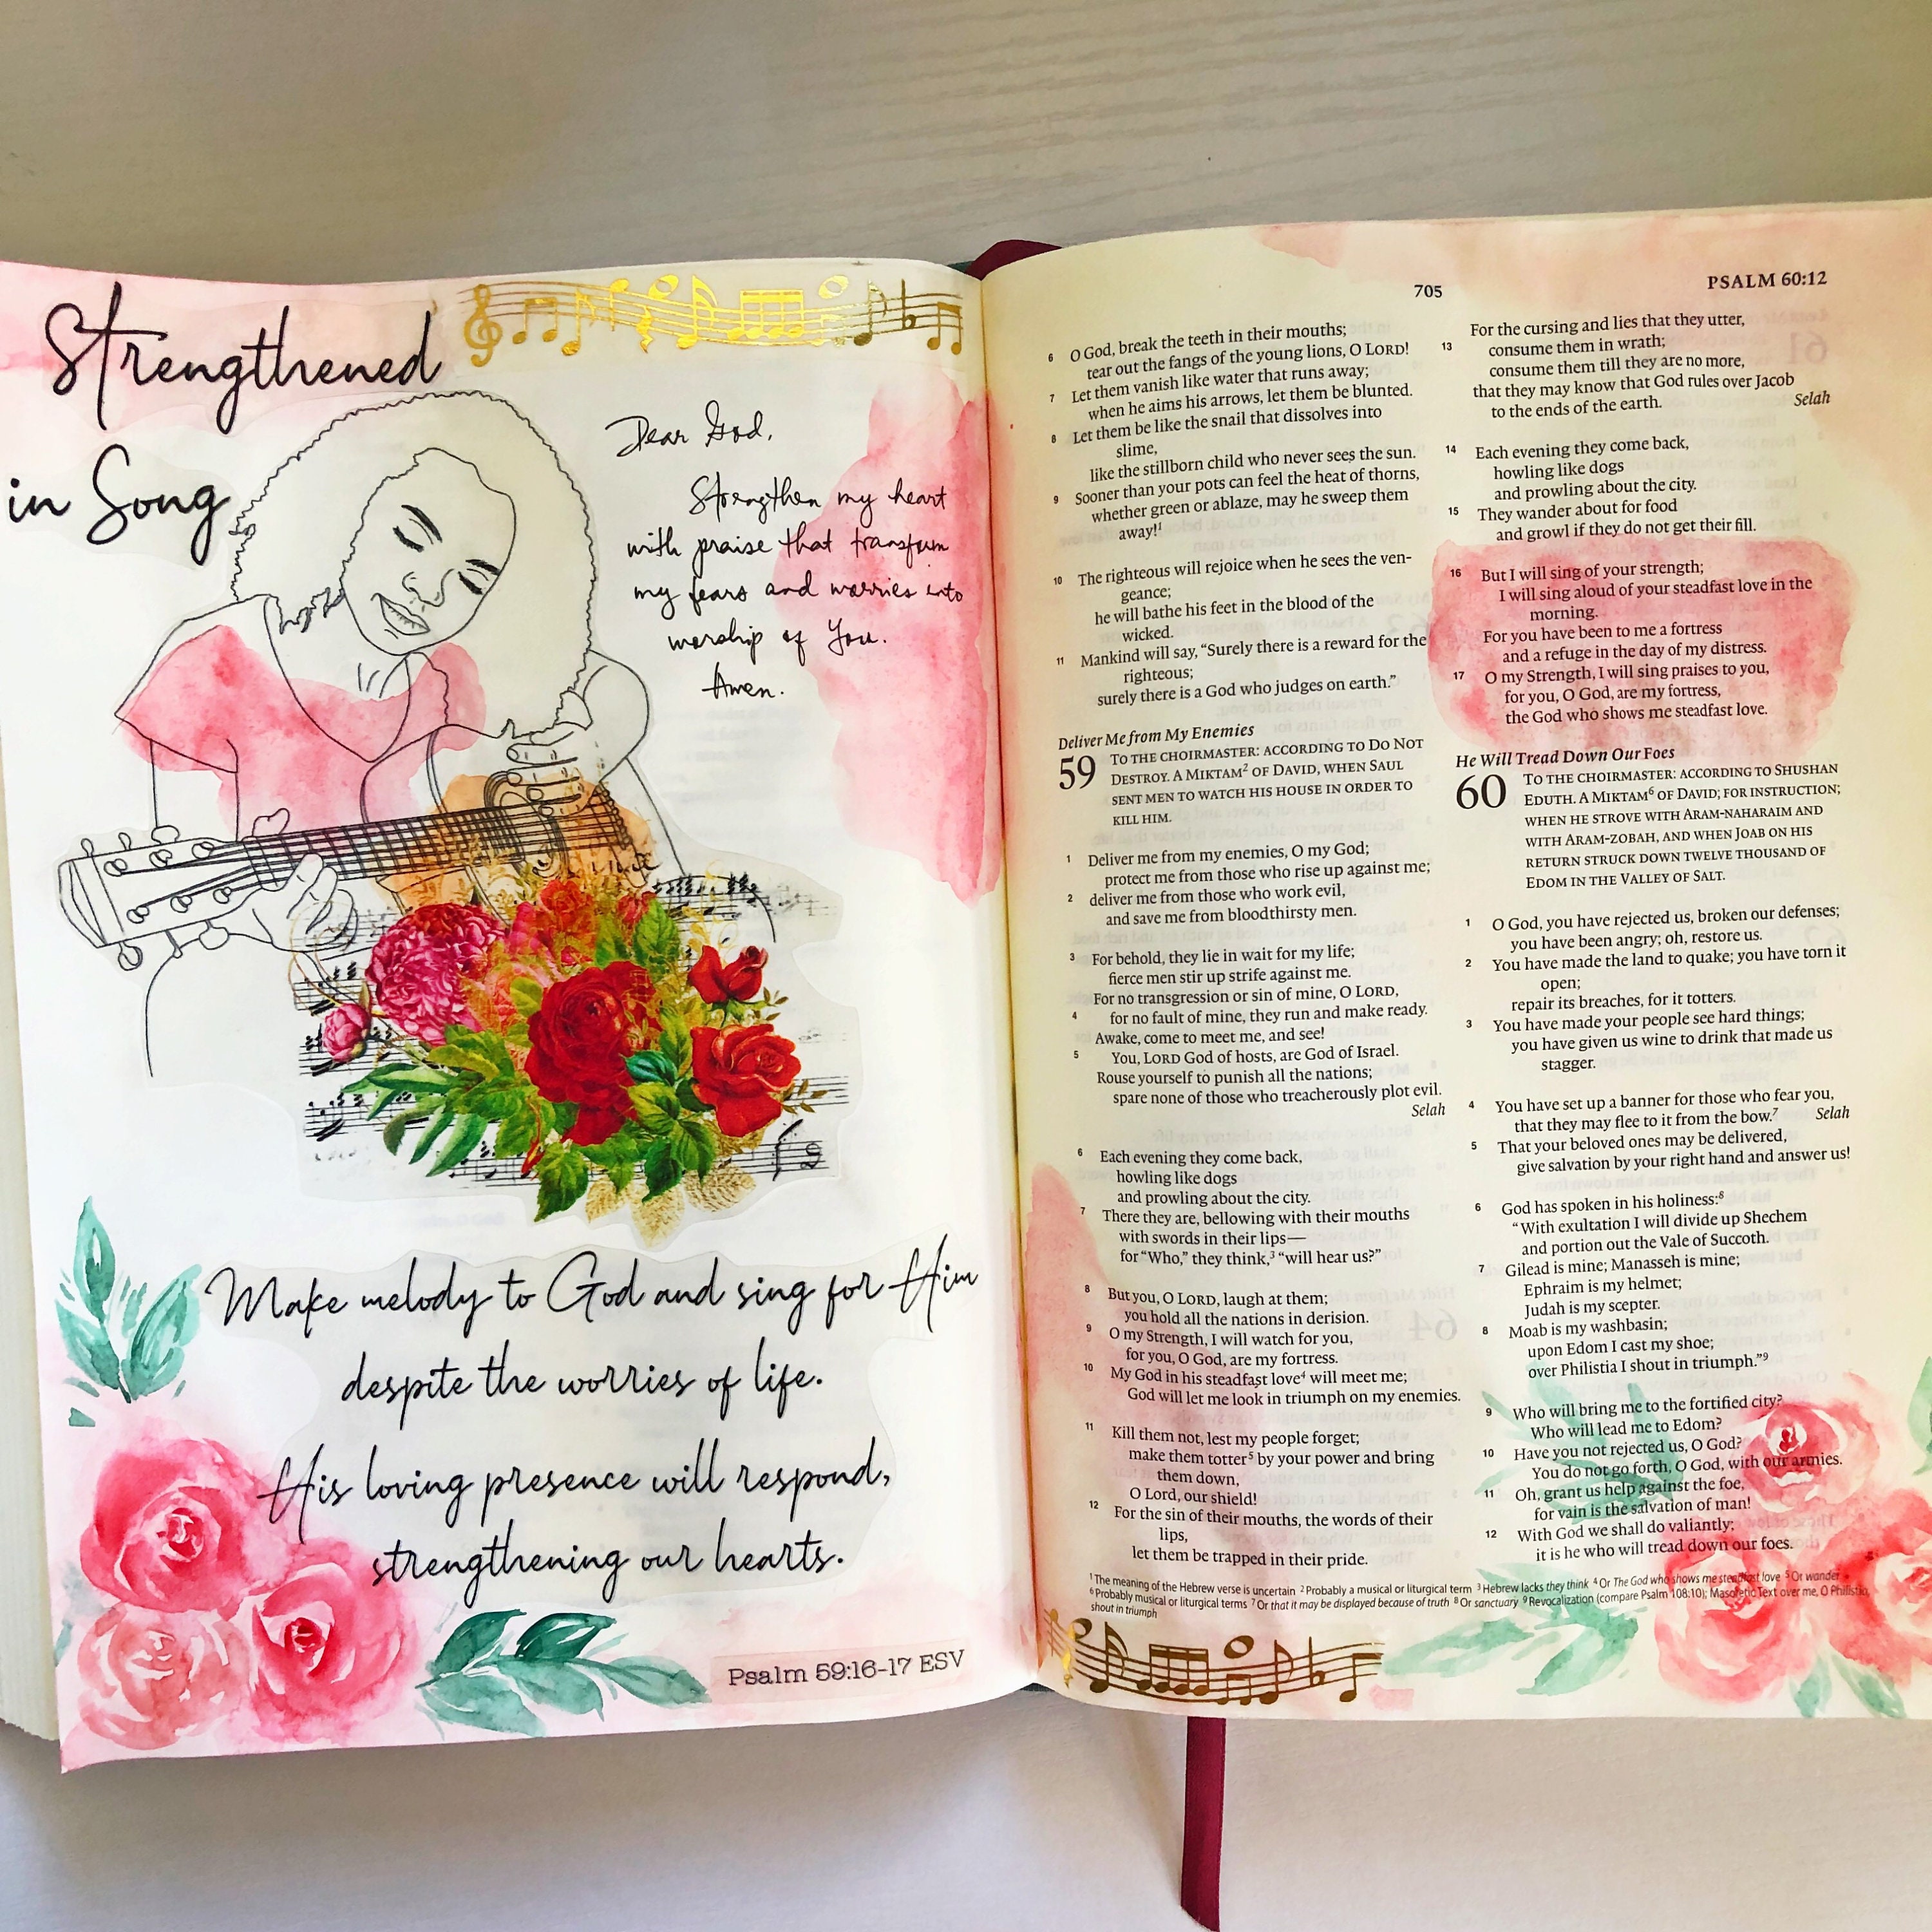 Strengthened
in Song
Dear God,
Strengthen my heart
with praise that transform
my fears and worries into
worship of You.
Amen.
Make melody to God and sing for Him
despite the worries of life.
His loving presence will respond,
strengthening our hearts.
Psalm 59:16-17 ESV
705
PSALM 60:12
6 O God, break the teeth in their mouths;
tear out the fangs of the young lions, O LORD!
7 Let them vanish like water that runs away;
when he aims his arrows, let them be blunted.
8 Let them be like the snail that dissolves into
slime,
like the stillborn child who never sees the sun.
9 Sooner than your pots can feel the heat of thorns,
whether green or ablaze, may he sweep them
away!1
10 The righteous will rejoice when he sees the ven-
geance;
he will bathe his feet in the blood of the
wicked.
11 Mankind will say, “Surely there is a reward for the
righteous;
surely there is a God who judges on earth.”
Deliver Me from My Enemies
59 TO THE CHOIRMASTER: ACCORDING TO DO NOT
DESTROY. A MIKTAM2 OF DAVID, WHEN SAUL
SENT MEN TO WATCH HIS HOUSE IN ORDER TO
KILL HIM.
1 Deliver me from my enemies, O my God;
protect me from those who rise up against me;
2 deliver me from those who work evil,
and save me from bloodthirsty men.
3 For behold, they lie in wait for my life;
fierce men stir up strife against me.
For no transgression or sin of mine, O LORD,
4 for no fault of mine, they run and make ready.
Awake, come to meet me, and see!
5 You, LORD God of hosts, are God of Israel.
Rouse yourself to punish all the nations;
spare none of those who treacherously plot evil.
Selah
6 Each evening they come back,
howling like dogs
and prowling about the city.
7 There they are, bellowing with their mouths
with swords in their lips—
for “Who,” they think,3 “will hear us?”
8 But you, O LORD, laugh at them;
you hold all the nations in derision.
9 O my Strength, I will watch for you,
for you, O God, are my fortress.
10 My God in his steadfast love4 will meet me;
God will let me look in triumph on my enemies.
11 Kill them not, lest my people forget;
make them totter5 by your power and bring
them down,
O Lord, our shield!
12 For the sin of their mouths, the words of their
lips,
let them be trapped in their pride.
For the cursing and lies that they utter,
13 consume them in wrath;
consume them till they are no more,
that they may know that God rules over Jacob
to the ends of the earth. Selah
14 Each evening they come back,
howling like dogs
and prowling about the city.
15 They wander about for food
and growl if they do not get their fill.
16 But I will sing of your strength;
I will sing aloud of your steadfast love in the
morning.
For you have been to me a fortress
and a refuge in the day of my distress.
17 O my Strength, I will sing praises to you,
for you, O God, are my fortress,
the God who shows me steadfast love.
He Will Tread Down Our Foes
60 TO THE CHOIRMASTER: ACCORDING TO SHUSHAN
EDUTH. A MIKTAM6 OF DAVID; FOR INSTRUCTION;
WHEN HE STROVE WITH ARAM-NAHARAIM AND
WITH ARAM-ZOBAH, AND WHEN JOAB ON HIS
RETURN STRUCK DOWN TWELVE THOUSAND OF
EDOM IN THE VALLEY OF SALT.
1 O God, you have rejected us, broken our defenses;
you have been angry; oh, restore us.
2 You have made the land to quake; you have torn it
open;
repair its breaches, for it totters.
3 You have made your people see hard things;
you have given us wine to drink that made us
stagger.
4 You have set up a banner for those who fear you,
that they may flee to it from the bow.7 Selah
5 That your beloved ones may be delivered,
give salvation by your right hand and answer us!
6 God has spoken in his holiness:8
“With exultation I will divide up Shechem
and portion out the Vale of Succoth.
7 Gilead is mine; Manasseh is mine;
Ephraim is my helmet;
Judah is my scepter.
8 Moab is my washbasin;
upon Edom I cast my shoe;
over Philistia I shout in triumph.”9
9 Who will bring me to the fortified city?
Who will lead me to Edom?
10 Have you not rejected us, O God?
You do not go forth, O God, with our armies.
11 Oh, grant us help against the foe,
for vain is the salvation of man!
12 With God we shall do valiantly;
it is he who will tread down our foes.
1 The meaning of the Hebrew verse is uncertain 2 Probably a musical or liturgical term 3 Hebrew lacks they think 4 Or The God who shows me steadfast love 5 Or wander
6 Probably musical or liturgical terms 7 Or that it may be displayed because of truth 8 Or sanctuary 9 Revocalization (compare Psalm 108:10); Masoretic Text over me, O Philistia,
shout in triumph